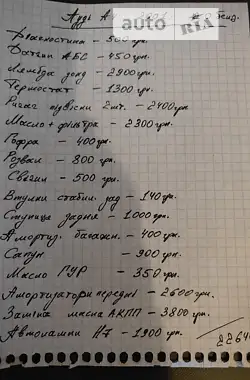 Ауді А
auto RIA
Діагностика - 500 грн.
Датчик АБС - 450 грн.
Лямбда зонд - 2900 грн.
Термостат - 1300 грн.
Ричаг підвіски 2шт. - 2400 грн.
Масло + фільтра - 2300 грн.
Гофра - 400 грн.
Розвал - 800 грн.
Свічки - 500 грн.
Втулки стабіл. зад - 140 грн.
Ступиця задня - 1000 грн.
Амортиз. багажн. - 400 грн.
Сапун - 900 грн.
Масло ГУР - 350 грн.
Амортизатори передні - 2600 грн.
Заміна масла АКПП - 3800 грн.
Автолампи H7 - 1900 грн.